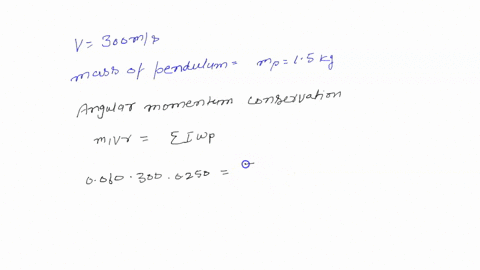 V = 300 m/s
mass of pendulum = mp = 1.5 kg
Angular momentum conservation
m1Vr = ΣIωp
0.060 · 300 · 0.250 =